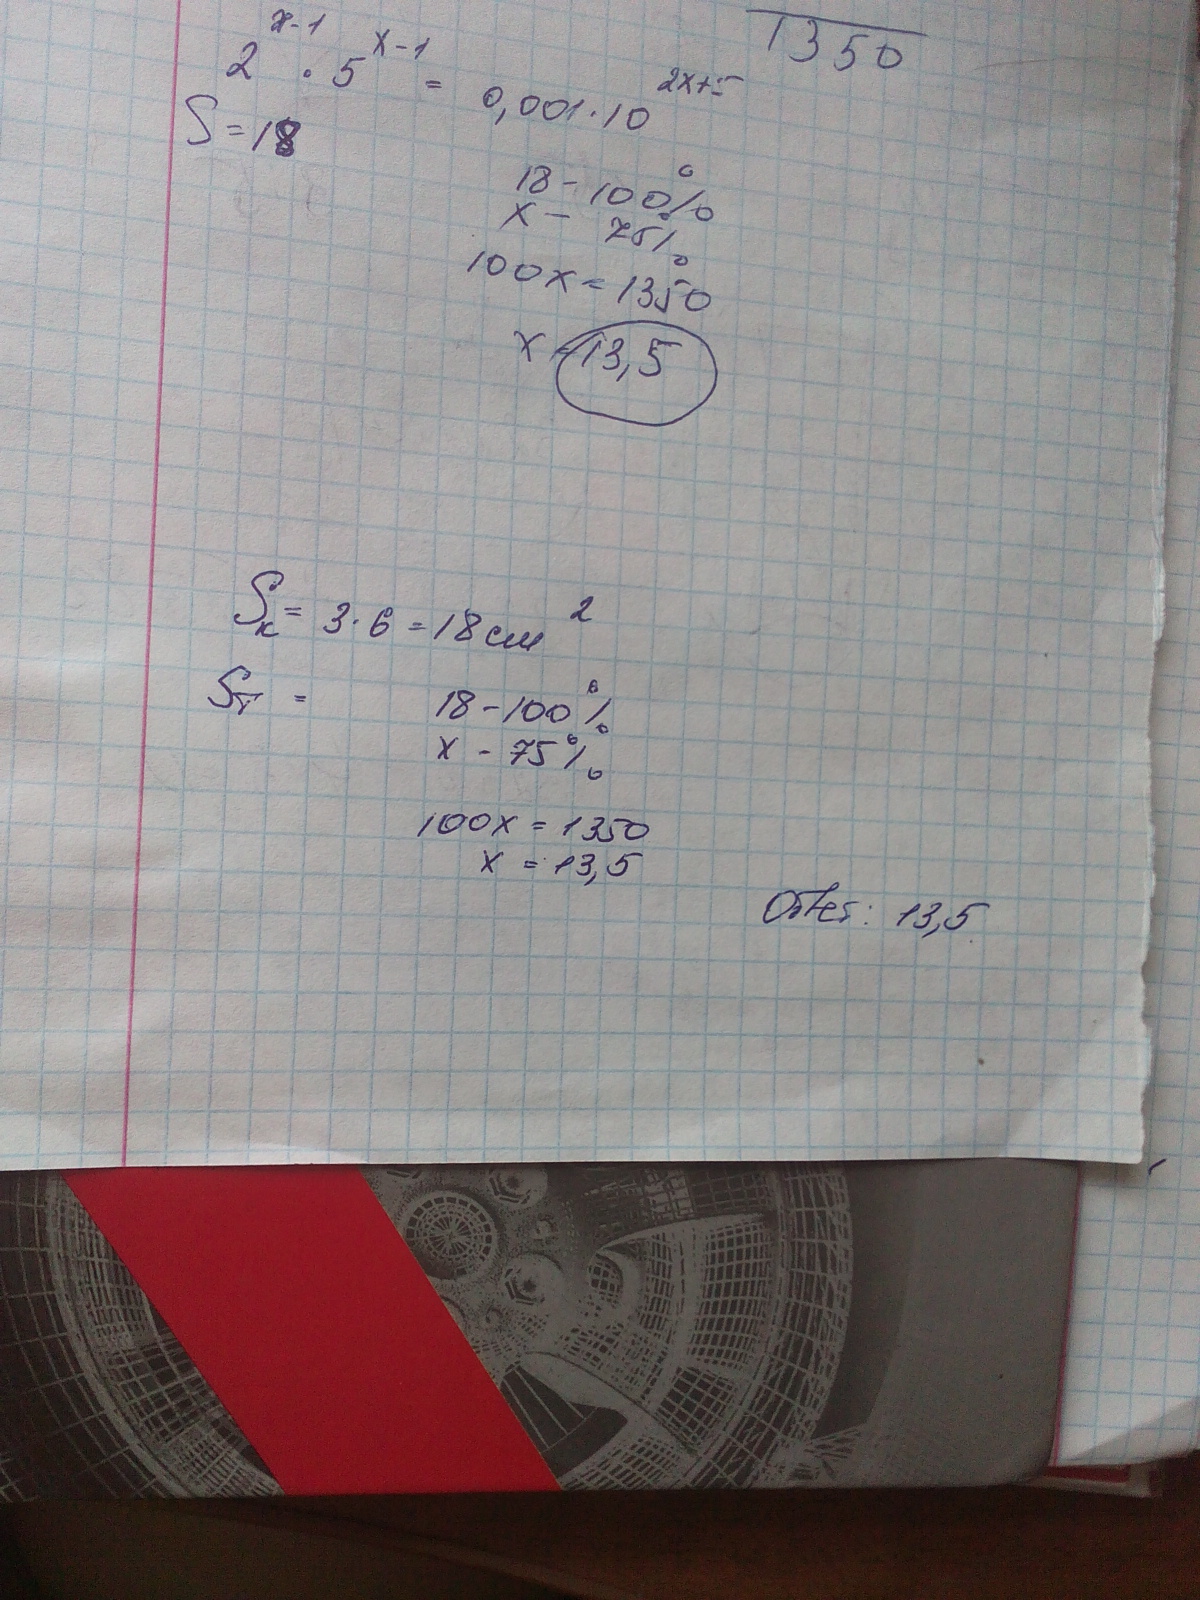 1350
2^{x-1} · 5^{x-1} = 0,001·10^{2x+5}
S=18
18 - 100%
x - 75%
100x = 1350
x = 13,5
Sк = 3·6 = 18 см²
Sт =
18 - 100%
x - 75%
100x = 1350
x = 13,5
Ответ: 13,5